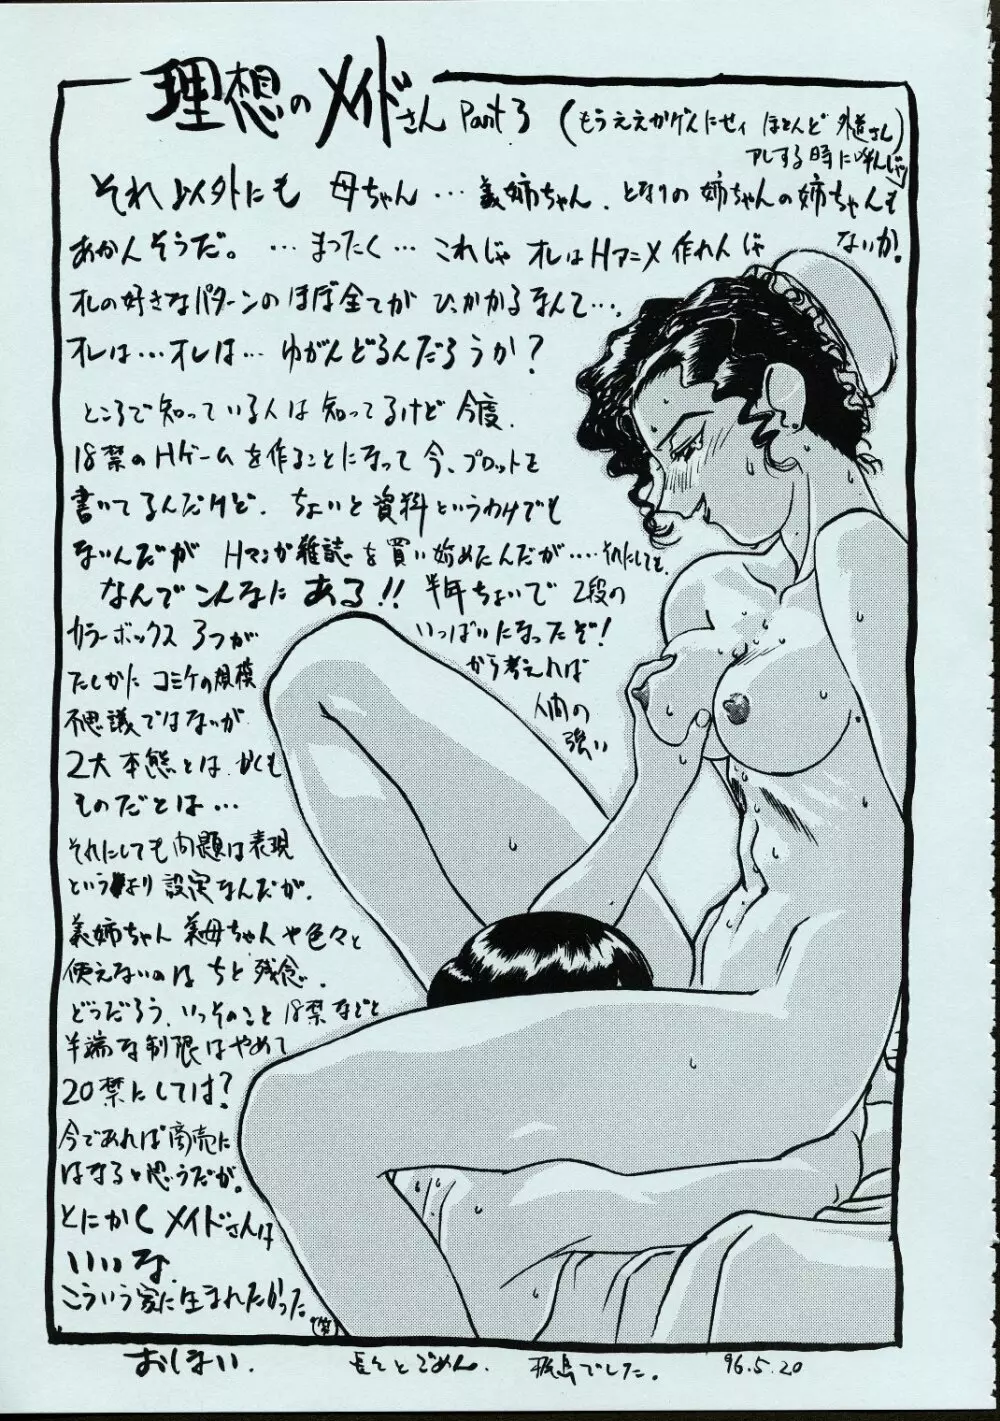 理想のメイドさん Part 3 (もうええかゲんにセイ ほとんど 外道さん)
アレする時に呼んじゃ
それ以外にも 母ちゃん… 義姉ちゃん、となりの姉ちゃんの姉ちゃんも
ないか?
あかんそうだ。…まったく… これじゃ オレはHアニメ作れんじゃ
オレの好きなパターンのほぼ全てが ひっかかるなんて…、
オレは…オレは… ゆがんどるんだろうか?
ところで知っている人は知ってるけど 今度、
18禁のHゲームを作ることになって 今、プロットを
書いてるんだけど、ちょいと資料というわけでも
ないんだが Hマンガ雑誌を買い始めたんだが…‥それにしても、
なんでこんなに ある!! 半年ちょいで 2段の
カラーボックス 3つが
いっぱいになったぞ!
たしかに コミケの規模
から考えれば
不思議ではないが
人間の
強い
2大本態とは、かくも
ものだとは…
それにしても 問題は表現
というより 設定なんだが、
義姉ちゃん 義母ちゃんや色々と
使えないのは ちと 残念。
どうだろう、いっそのこと 18禁などと
半端な制限はやめて
20禁にしては?
今であれば商売に
はなると思うだが。
とにかく メイドさんは
いいな、
こういう家に生まれたかった
(笑)
おしまい、
ごめん、
でした。
96.5.20